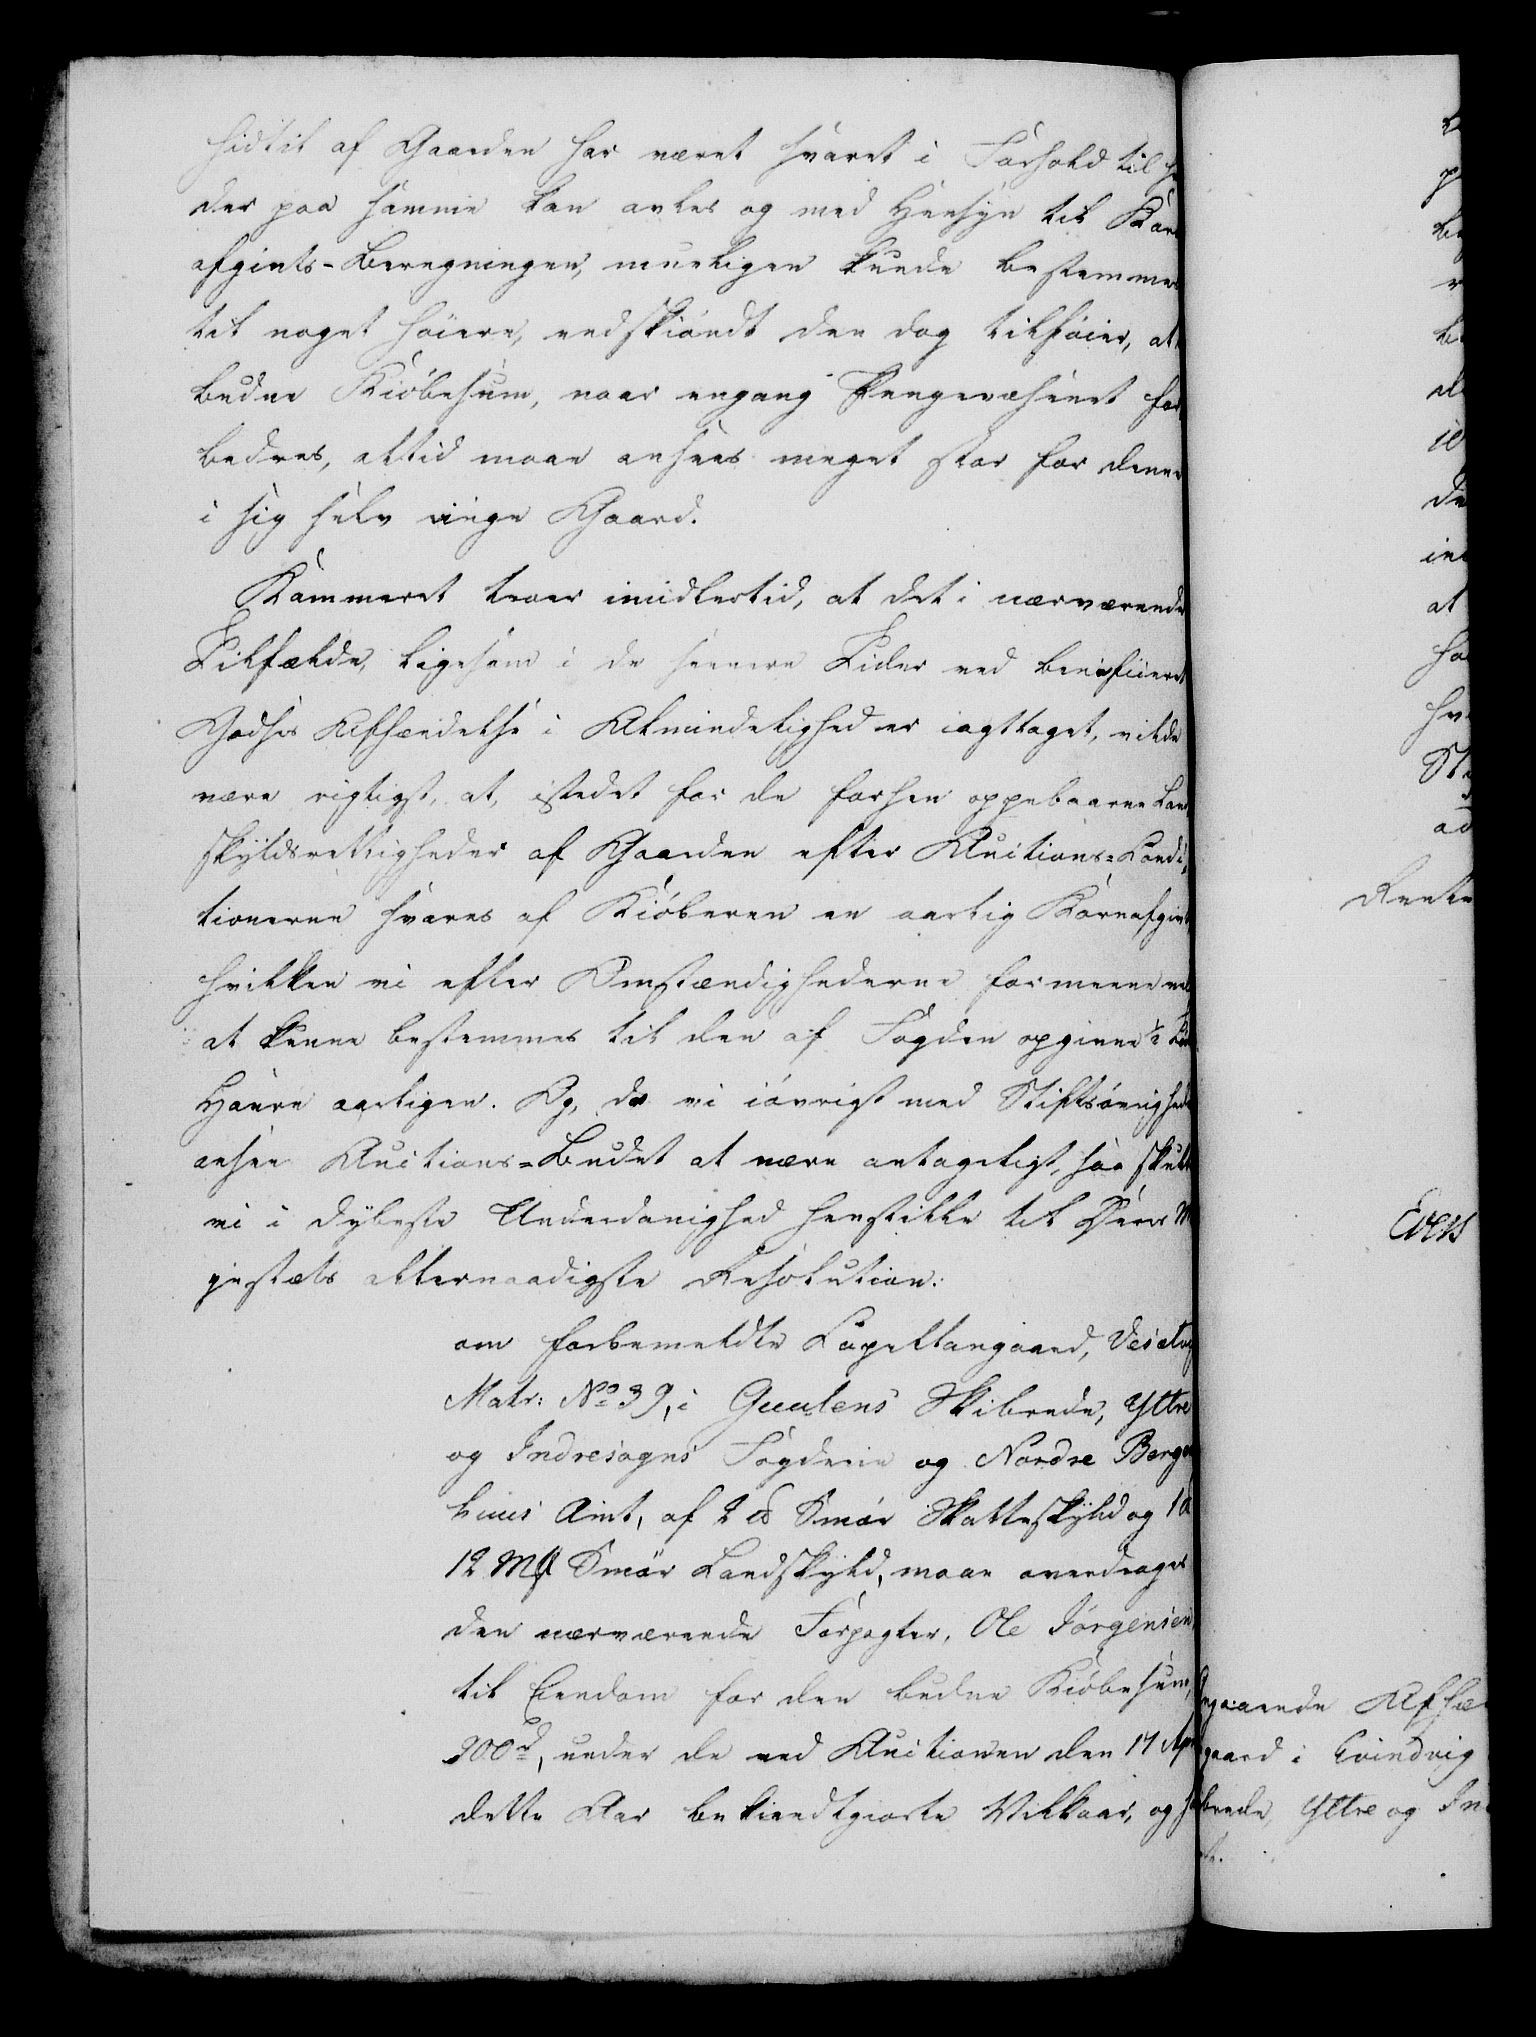 hidtil af Gaarden har været svaret i Forhold til
der paa samme kan avles og med Hensyn til Korn
afgivts-Beregningen, mueligen kunde bestemmes
til noget høiere, endskiøndt den dog tilføier, at
budne Kiøbesum, naar engang Pengevæsenet for
bedres, altid maae ansees meget stor for denne
i sig selv ringe Gaard.
Kammeret troer imidlertid, at det i nærværende
Tilfælde, ligesom i de senere Tider ved beneficeret
Godses Afhændelse i Almindelighed er iagttaget, vilde
være rigtigst, at, istedet for de forhen oppebaarne Land
skyldsrettigheder af Gaarden efter Auctions-Condi-
tionerne svares af Kiøberen en aarlig Kornafgivt
hvilken vi efter Omstændighederne formeene
at kunne bestemmes til den af Fogden opgivne ½
Havre aarligen. Og, da vi iøvrigt med Stiftsøvrighed
ansee Auctions-Budet at være antageligt, saa skulle
vi i dybeste Underdanighed henstille til Deres M
jestæts allernaadigste Resolution:
om forbemeldte Capellangaard,
Matr: No 39, i Guulens Skibrede, Yttre
og Indresogns Fogderie og Nordre Bergen
huus Amt, af 2 Smør Skatteskyld og 1
12 Mk Smør Landskyld, maae overdrages
den nærværende Forpagter, Ole Jörgensen,
til Eiendom for den budne Kiøbesum,
900 rd, under de ved Auctionen den 17 Apr
dette Aar bekiendtgiorte Vilkaar, og
Rente
Evers
gaaende Afhæ
gaard i Evindvig
brede, Yttre og In